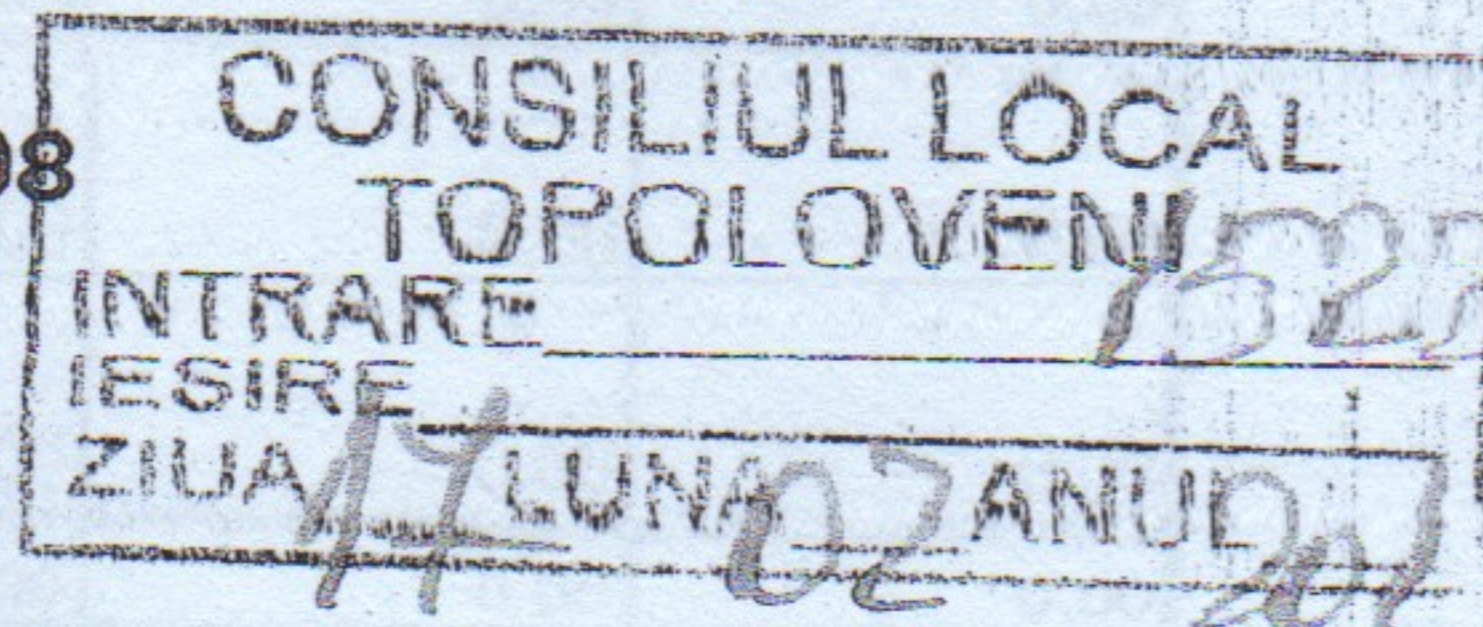 98
CONSILIUL LOCAL
TOPOLOVENI
INTRARE
IESIRE
ZIUA 14 LUNA 02 ANUL 201